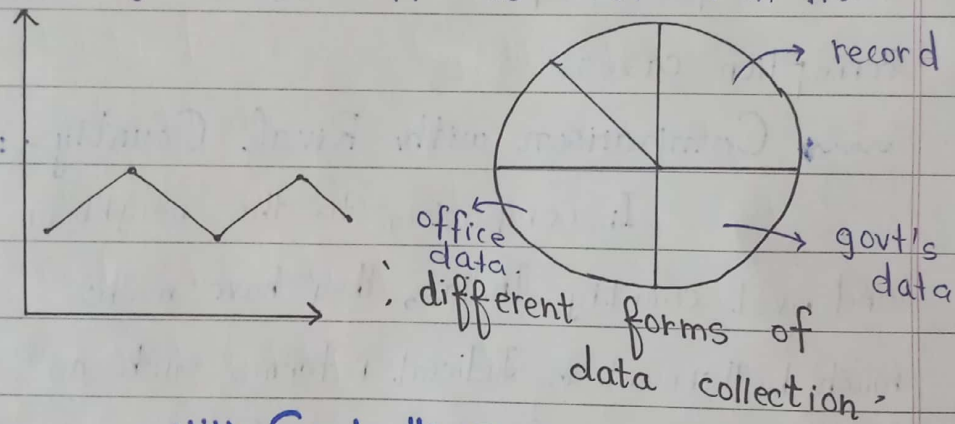 record
office
data.
govt's
data
∴ different forms of
data collection.